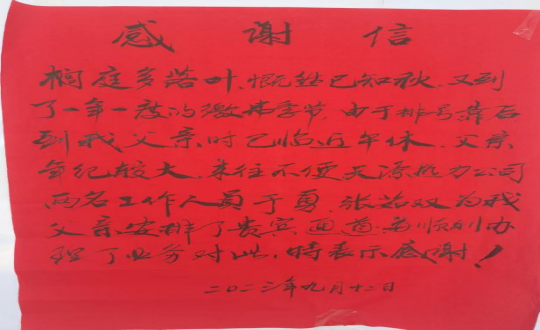 感谢信
桐庭多落叶,慨然已知秋,又到
了一年一度的缴费季节,由于排号靠后
到我父亲时已临近午休,父亲
年纪较大,来往不便天源热力公司
两名工作人员于勇,张茹双为我
父亲安排了贵宾通道马顺利办
理了业务对此,特表示感谢!
二〇二三年九月十二日